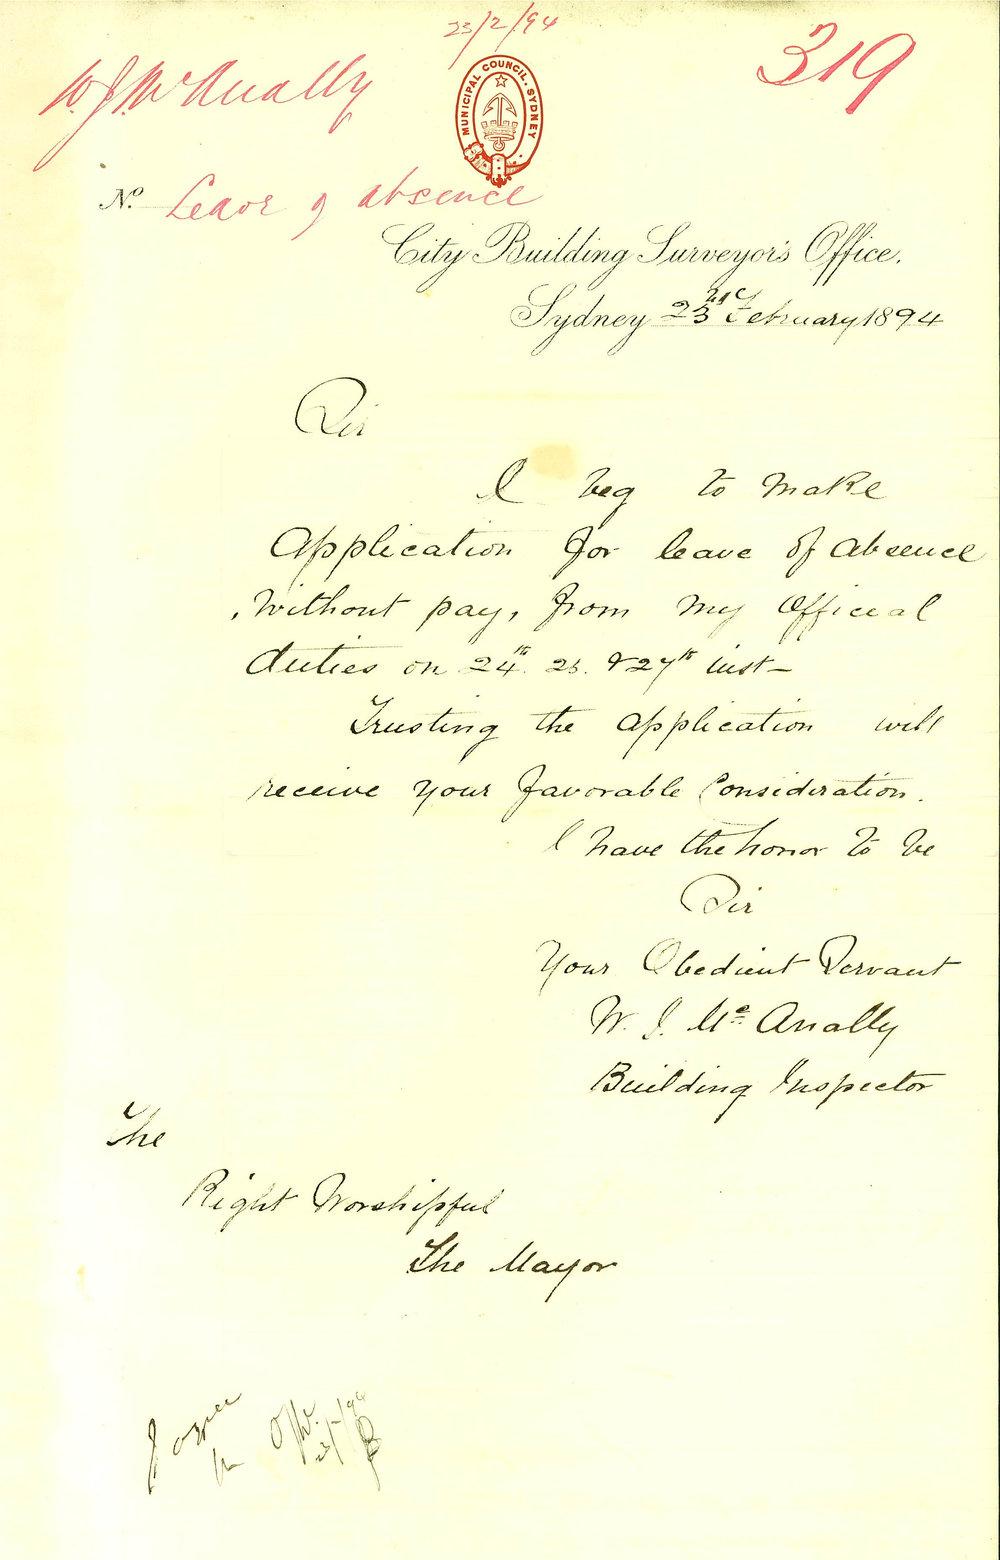 23/2/94
319
W. J. McAnally
MUNICIPAL COUNCIL. SYDNEY
No. Leave of absence
City Building Surveyor's Office.
Sydney 23rd February 1894
Sir
I beg to make
Application for leave of absence
, without pay, from my Official
duties on 24th. 26. & 27th inst—
Trusting the application will
receive your favorable Consideration.
I have the honor to be
Sir
Your Obedient Servant
W. J. Mc Anally
Building Inspector
The
Right Worshipful
The Mayor